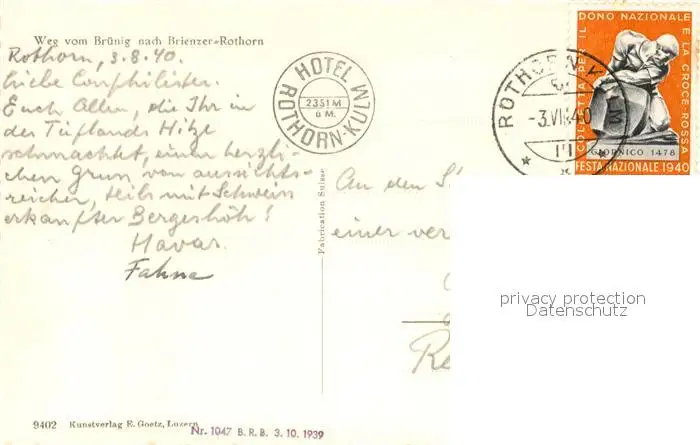 Weg vom Brünig nach Brienzer-Rothorn
Rothorn, 3.8.40.
Liebe Couphilister.
Euch Allen, die Ihr in
der Tieflands Hitze
schmachtet, einen herzli-
chen Gruss von aussichts-
reicher, teils mit Schweiss
erkaufter Bergeshöh!
Havas.
Fahne
HOTEL
ROTHORN-KULM
2351 M
ü. M.
ROTHORN-KULM
-3.VIII.40
COLLETTA PER IL DONO NAZIONALE E LA CROCE-ROSSA
GIORNICO 1478
FESTA NAZIONALE 1940
An den
einer
Fabrication Suisse
privacy protection
Datenschutz
9402 Kunstverlag E. Goetz, Luzern
Nr. 1047 B. R. B. 3. 10. 1939